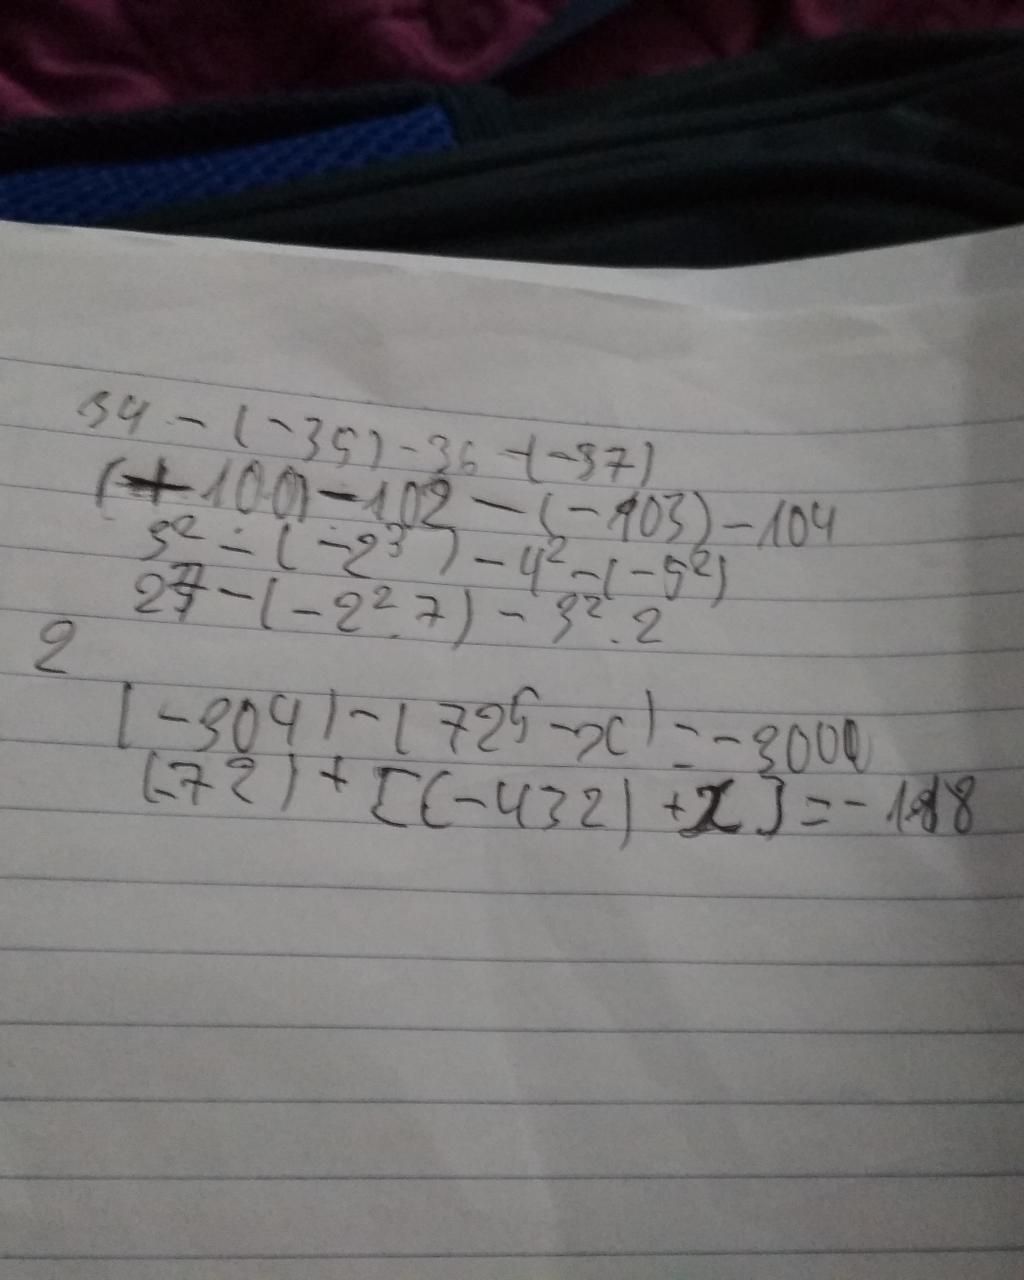 34 - (-35) - 36 - (-37)
(+100) - 102 - (-103) - 104
3² - (-2³) - 4² - (-5²)
- (-2².7) - 3².2
2
(-304) - (725 - x) = -3000
(-72) + [(-432) + x] =